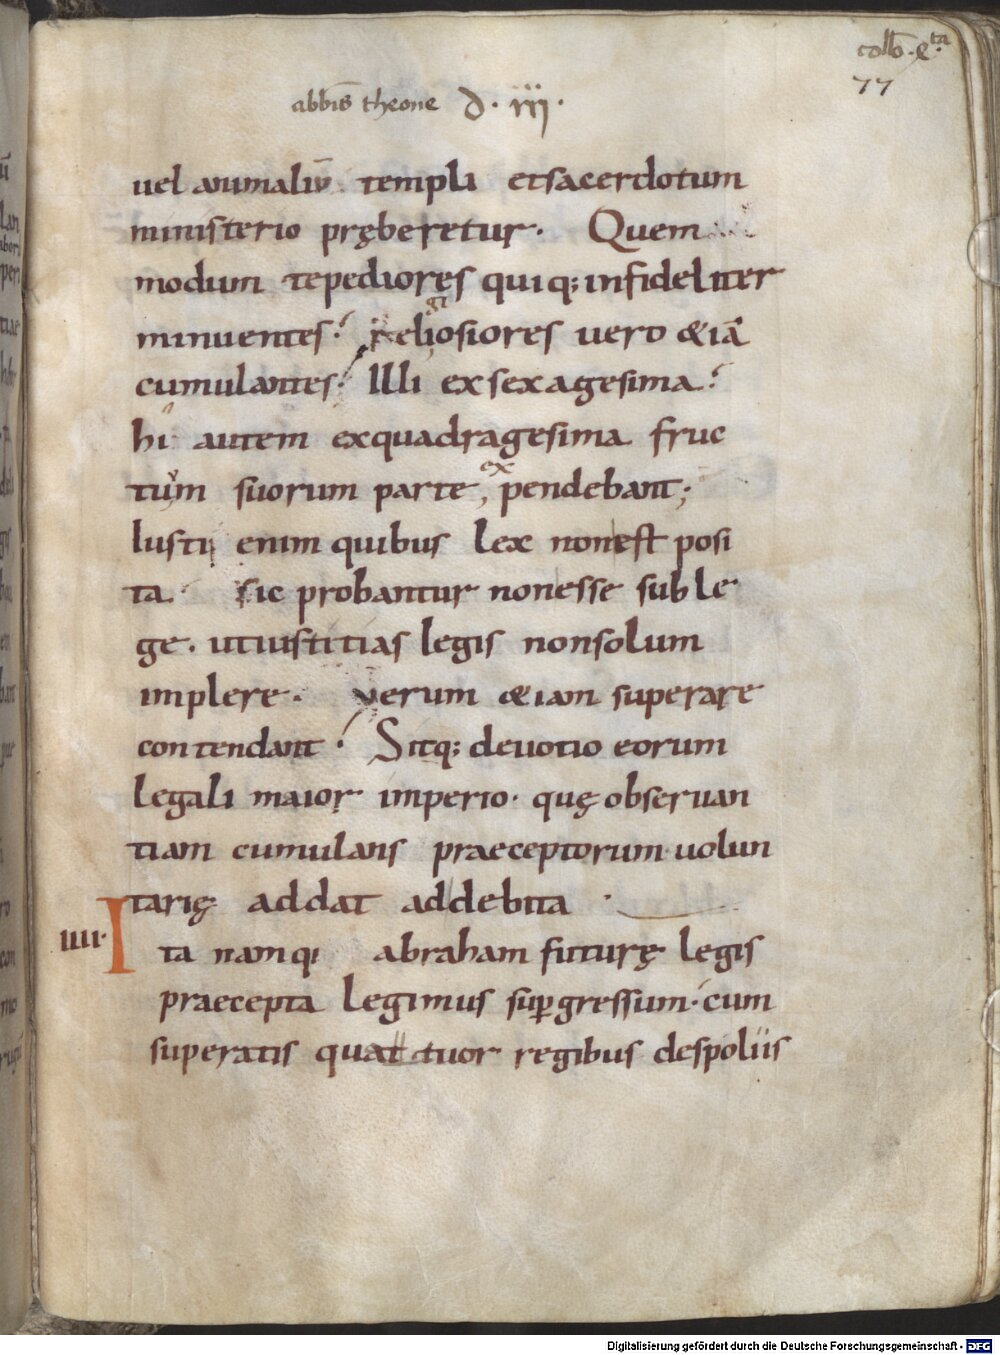 collō · eta
77
abbis̄ theone d · iii ·
uel animaliū templi etsacerdotum
ministerio pręberetur · Quem
modum tepediores quiq; infideliter
minuentes · religiosiores uero &iā
cumulantes · Illi exsexagesima ·
hi autem exquadragesima fruc
tuum suorum parte, expendebant ;
Iusti enim quibus lex nonest posi
ta · sic probantur nonesse suble
ge · utiustitias legis nonsolum
implere · verum &iam superare
contendant · Sitq; deuotio eorum
legali maior imperio · quę obseruan
tiam cumulans praeceptorum uolun
tarię addat addebita ·
IIII · Ita namq; abraham futurę legis
praecepta legimus supgressum · cum
superatis quattuor regibus despoliis
Digitalisierung gefördert durch die Deutsche Forschungsgemeinschaft - DFG